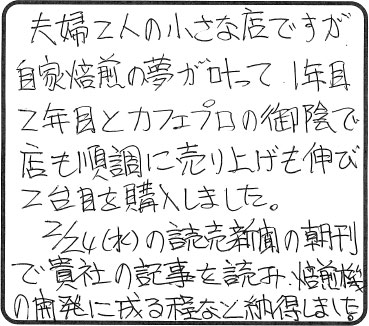 夫婦2人の小さな店ですが
自家焙煎の夢が叶って、1年目
2年目とカフェプロの御陰で
店も順調に売り上げも伸び
2台目を購入しました。
2/24(水)の読売新聞の朝刊
で貴社の記事を読み、焙煎機
の開発に成る程なと納得しました。